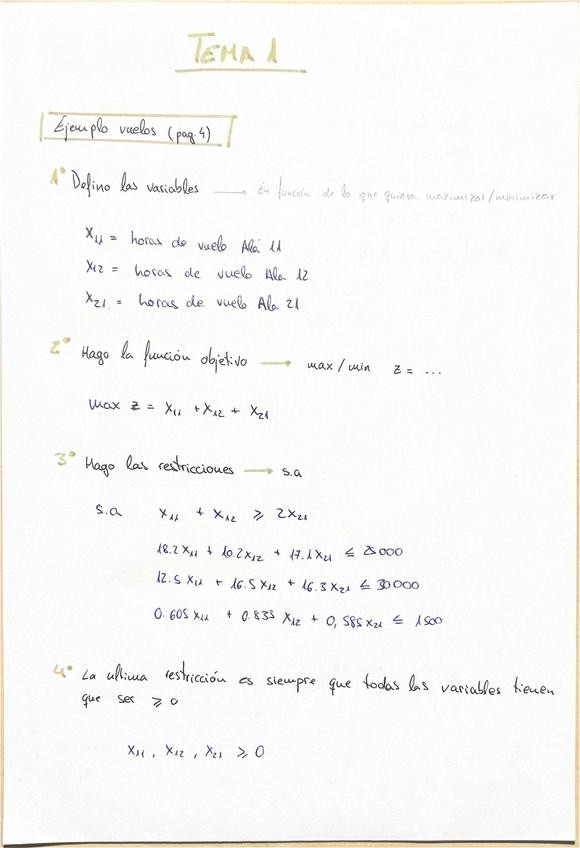 TEMA 1
Ejemplo vuelos (pag.4)
1º Defino las variables → En función de lo que quiera maximizar/minimizar
X₁₁ = horas de vuelo Ala 11
X₁₂ = horas de vuelo Ala 12
X₂₁ = horas de vuelo Ala 21
2º Hago la función objetivo → max/min z = ...
max z = X₁₁ + X₁₂ + X₂₁
3º Hago las restricciones → s.a
s.a X₁₁ + X₁₂ ≥ 2X₂₁
18.2X₁₁ + 10.2X₁₂ + 17.1X₂₁ ≤ 25000
12.5X₁₁ + 16.5X₁₂ + 16.3X₂₁ ≤ 30000
0.605X₁₁ + 0.835X₁₂ + 0,585X₂₁ ≤ 1500
4º La ultima restricción es siempre que todas las variables tienen
que ser ≥ 0
X₁₁, X₁₂, X₂₁ ≥ 0